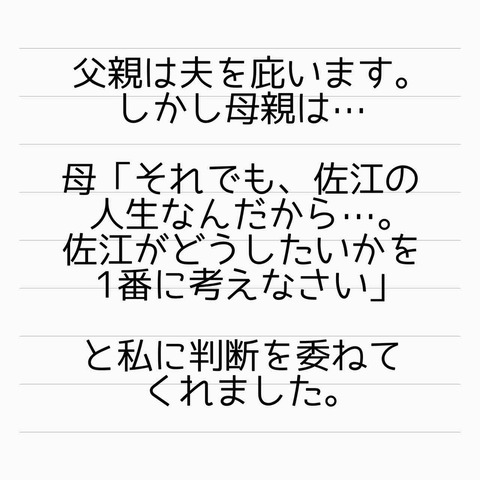 父親は夫を庇います。
しかし母親は…
母「それでも、佐江の
人生なんだから…。
佐江がどうしたいかを
1番に考えなさい」
と私に判断を委ねて
くれました。